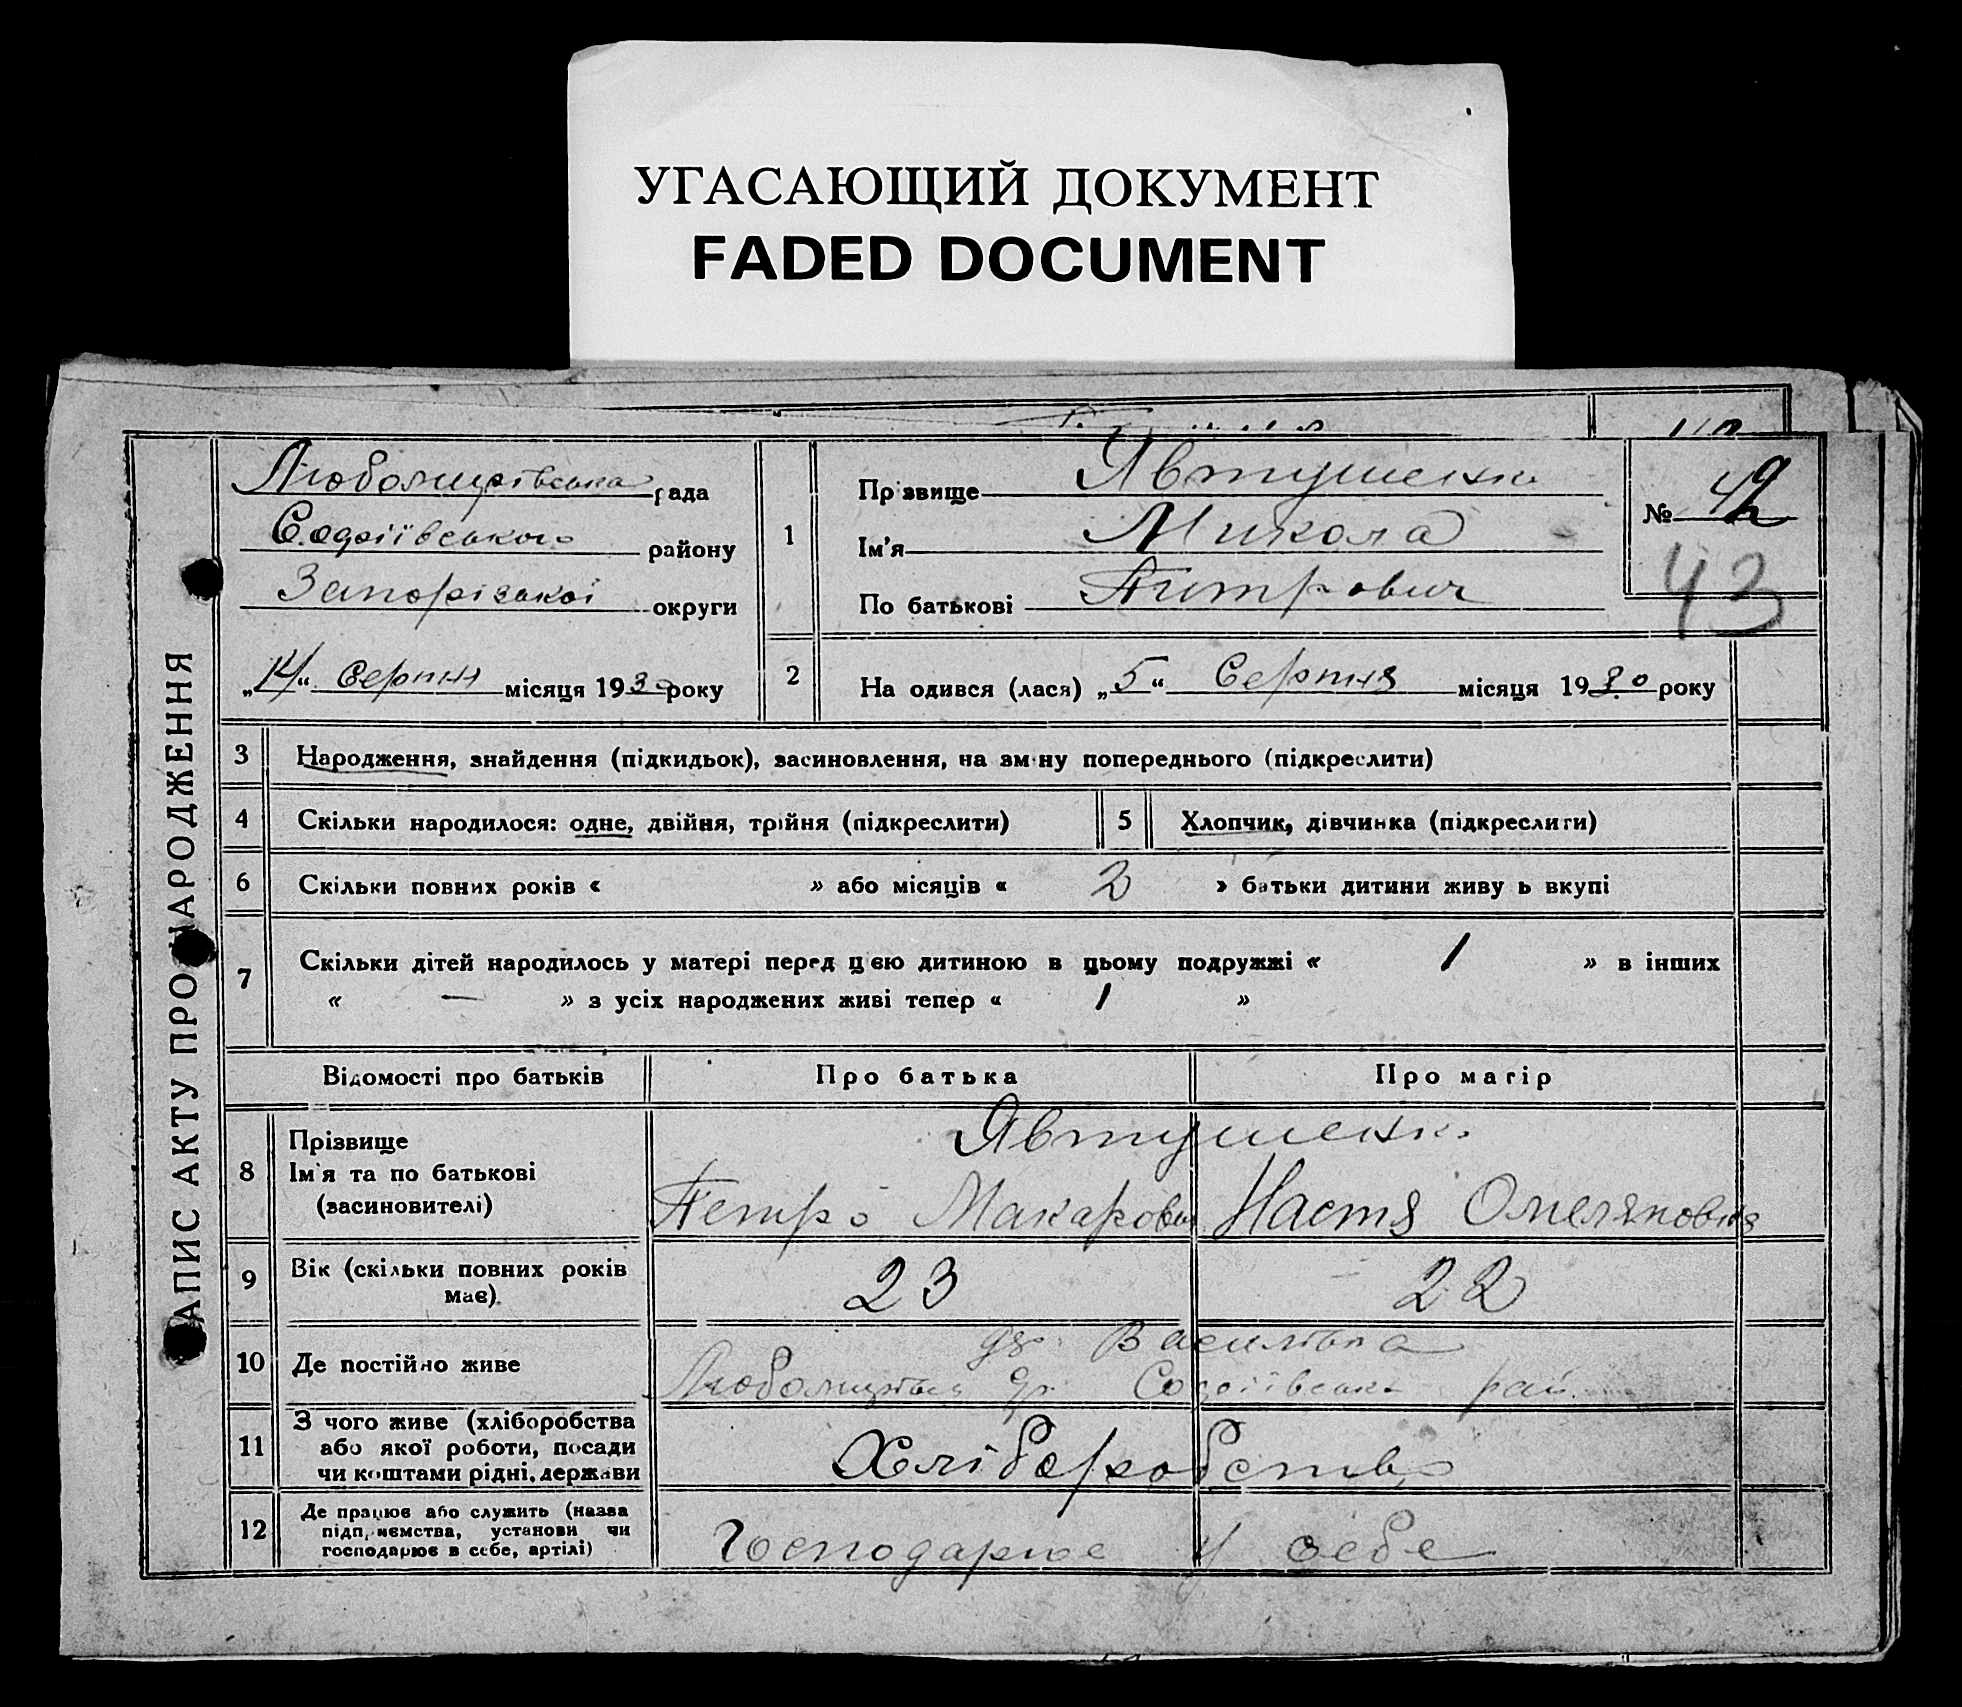 УГАСАЮЩИЙ ДОКУМЕНТ
FADED DOCUMENT
ЗАПИС АКТУ ПРО НАРОДЖЕННЯ
Любомирівська рада
Софіївського району
Запорізької округи
„14“ Серпня місяця 1930 року
1
Прізвище Явтушенко
Ім'я Микола
По батькові Питрович
№ 42
43
2
На одився (лася) „5“ Серпня місяця 1930 року
3 Народження, знайдення (підкидьок), засиновлення, на зміну попереднього (підкреслити)
4 Скільки народилося: одне, двійня, трійня (підкреслити)
5 Хлопчик, дівчинка (підкреслити)
6 Скільки повних років « » або місяців « 2 » батьки дитини живу ь вкупі
7 Скільки дітей народилось у матері перед цією дитиною в цьому подружжі « 1 » в інших
« — » з усіх народжених живі тепер « 1 »
Відомості про батьків Про батька Про матір
8 Прізвище Явтушенко
Ім'я та по батькові
(засиновителі)
Петро Макарович Настя Омеляновна
9 Вік (скільки повних років має) 23 22
10 Де постійно живе
Василівка
Софіївськ рай.
11 З чого живе (хліборобства
або якої роботи, посади
чи коштами рідні, держави
Хліборобство
12 Де працює або служить (назва
підприємства, установи чи
господарює в себе, артілі)
Господарює у себе